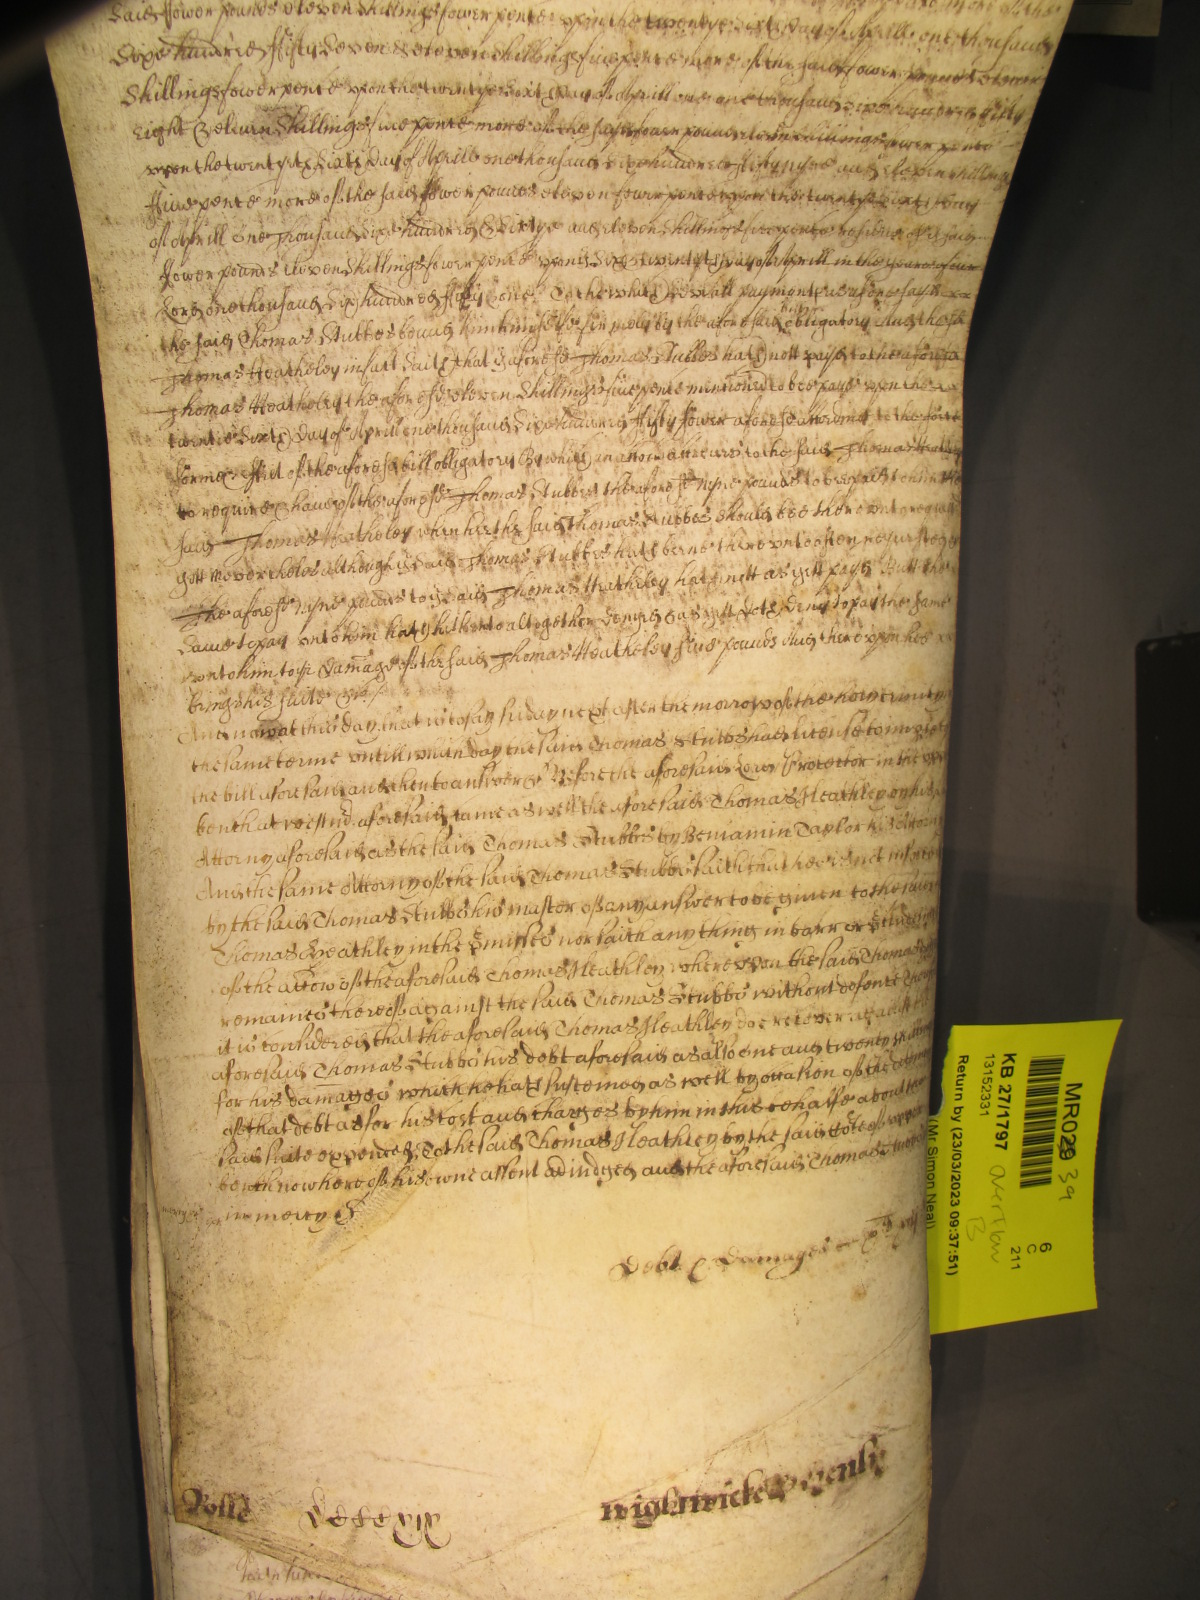 said ffower pounds eleven shillings fower pence upon the twentye sixt day of Aprill one thousand
Sixe hundred ffifty Seven & eleven shillings five pence more of the said fower pounds eleven
shillings fower pence upon the twentye Sixt day of Aprill one thousand sixe hundred ffifty
Eight & eleven shillings five pence more of the said fower pounds eleven shillings fower pence
upon the twentyth Sixth day of Aprill one thousand sixe hundred ffifty nyne and eleven shillings
ffive pence more of the said ffower pounds eleven fower pence upon the twentye sixt day
of Aprill One Thousand Sixe hundred & Sixtye and eleven shillings five pence residue of the said
ffower pounds eleven shillings fower pence upon the Sixe & twentyth day of Aprill in the yeare of our
Lord one thousand Six hundred Sixty & one To the which severall payments as aforesaid
the said Thomas Stubbes bound himselfe firmely by the aforesaid bill obligatory And the sd
Thomas Heatheley in fact saith that ye aforesd Thomas Stubbes hath nott payd to the aforesaid
Thomas Heatheley the aforesd eleven shillings five pence mentioned to bee payd upon the
twentie Sixth day of Aprill one thousand Sixe hundred ffifty fower aforesd according to the
forme & effect of the aforesd bill obligatory By which an accion accrued to the said Thomas Heatheley
to require & have of the aforesd Thomas Stubbes the aforesd nyne pounds to be payd to him the
said Thomas Heatheley when hee the said Thomas Stubbes should bee thereunto required
yett neverthelesse although ye said Thomas Stubbes hath beene thereunto often requested
The aforesd nyne pounds to ye said Thomas Heatheley hath nott as yett payd Butt the
same to pay unto him hath hitherto altogether denyed & as yett doth deny to pay the same
unto him to ye damage of the said Thomas Heatheley five pounds And thereupon hee
brings his suite &c
And now at this day that is to say friday next after the morrow of the holy trinity
the same terme untill which day the said Thomas Stubbs had licence to imparle to
the bill aforesaid and then to answer &c Before the aforesaid Lord Protector in the upper
bench at westmr aforesaid came as well the aforesaid Thomas Heathley by his
Attorny aforesaid as the said Thomas Stubbs by Beniamin Taylor his Attorny
And the same Attorny of the said Thomas Stubbs saith that hee is not informed
by the said Thomas Stubbs his master of any answer to be given to the said
Thomas Heathley in the premisses nor saith any thing in barr or preclusion
of the accion of the aforesaid Thomas Heathley whereupon the said Thomas
remaines thereof against the said Thomas Stubbs without defence Therefore
it is considered that the aforesaid Thomas Heathley doe recover against the
aforesaid Thomas Stubbs his debt aforesaid as also one and twenty shillings
for his damages which he hath susteined as well by occasion of the detencion
of that debt as for his costs and charges by him in this behalfe about his
said suite expended To the said Thomas Heathley by the said Cort of upper
bench now here of his owne assent adiudged and the aforesaid Thomas Stubbs
in mercy &c
mercy
Debt & Damages
Rolle DCCCCxix wightwicke &
MR029
39
KB 27/1797
13152331
overflow
B
6
C
211
Return by (23/03/2023 09:37:51)
(Mr Simon Neal)